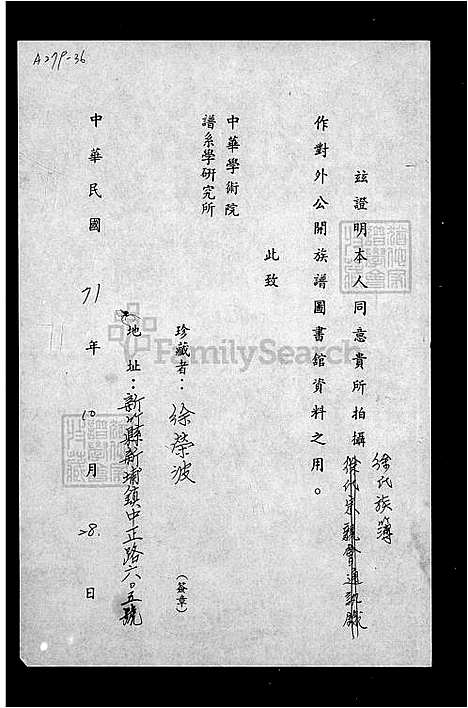 A279-36
茲證明本人同意貴所拍攝徐氏族簿
徐氏宗親會通訊錄
作對外公開族譜圖書館資料之用。
此致
中華學術院
譜系學研究所
珍藏者：徐榮波（簽章）
地址：新竹縣新埔鎮中正路六〇五號
中華民國71年10月28日
FamilySearch